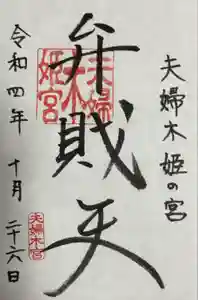 夫婦木姫の宮
弁財天
夫婦木姫宮
令和四年 十月 二十六日
夫婦木宮